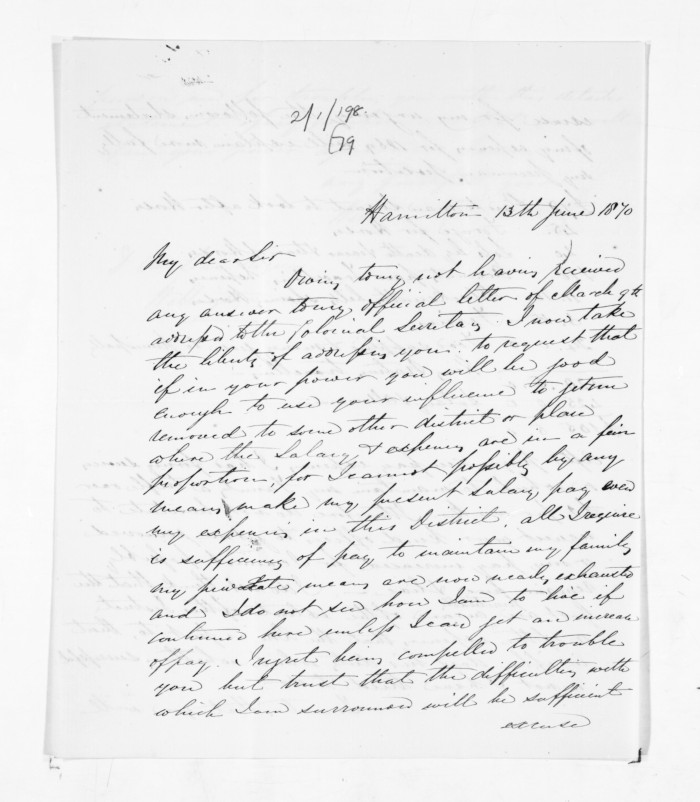 2/1/198
G79
Hamilton 13th June 1870
My dear Sir
Owing to my not having received
any answer to my official letter of March 9th
addressed to the Colonial Secretary I now take
the liberty of addressing you to request that
if in your power you will be good
enough to use your influence to get me
removed to some other district or place
where the Salary & expenses are in a fair
proportion, for I cannot possibly by any
means make my present Salary pay even
my expenses in this District, all I require
is sufficiency of pay to maintain my family
my private means are now nearly exhausted
and I do not see how I am to live if
continued here unless I can get an increase
of pay. I regret being compelled to trouble
you but trust that the difficulties with
which I am surrounded will be sufficient
excuse